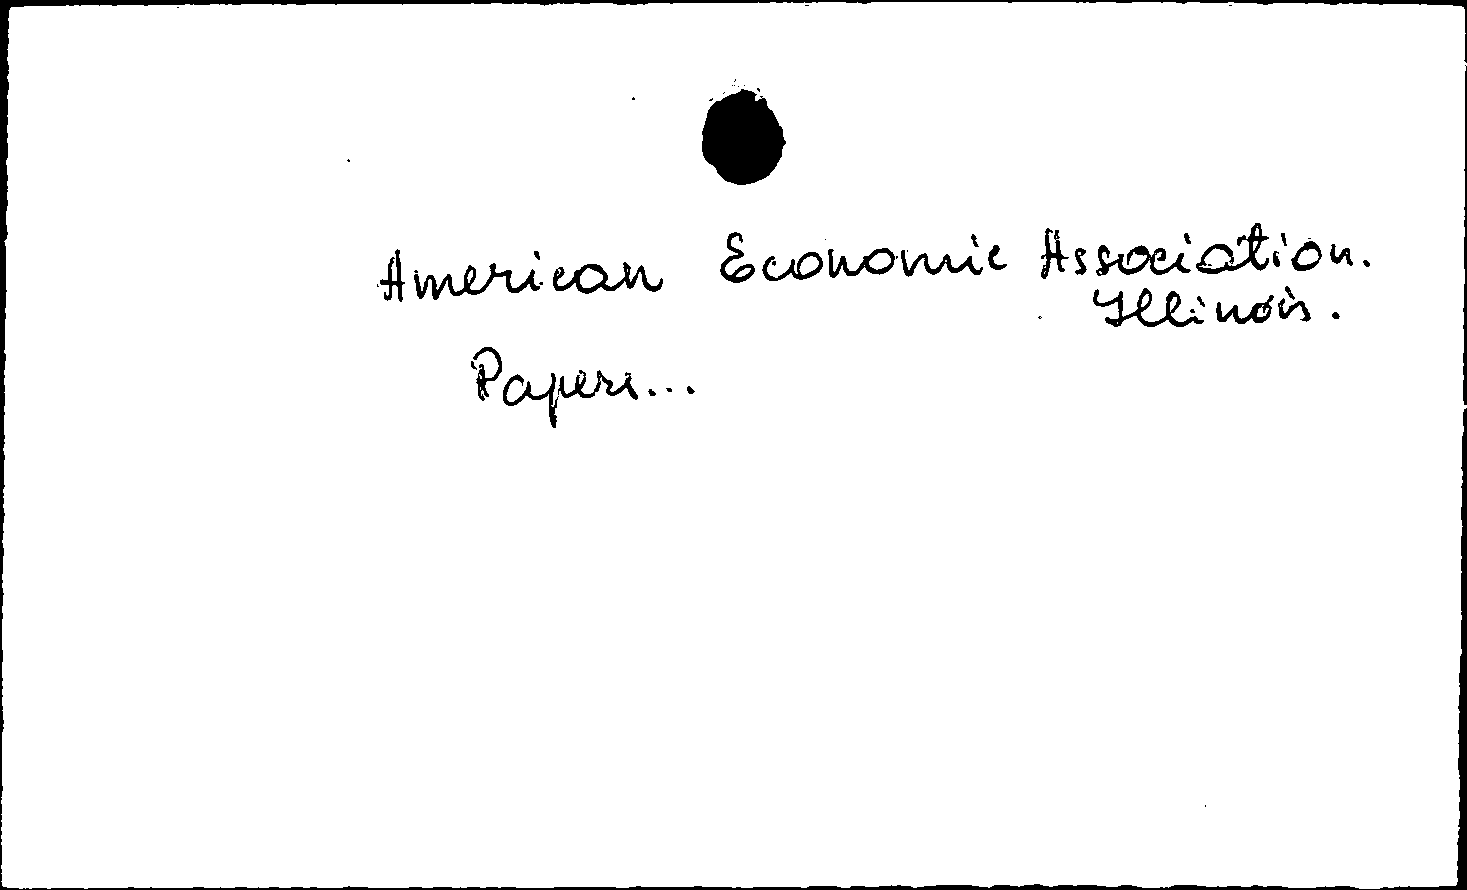 American Economic Association.
Illinois.
Papers...